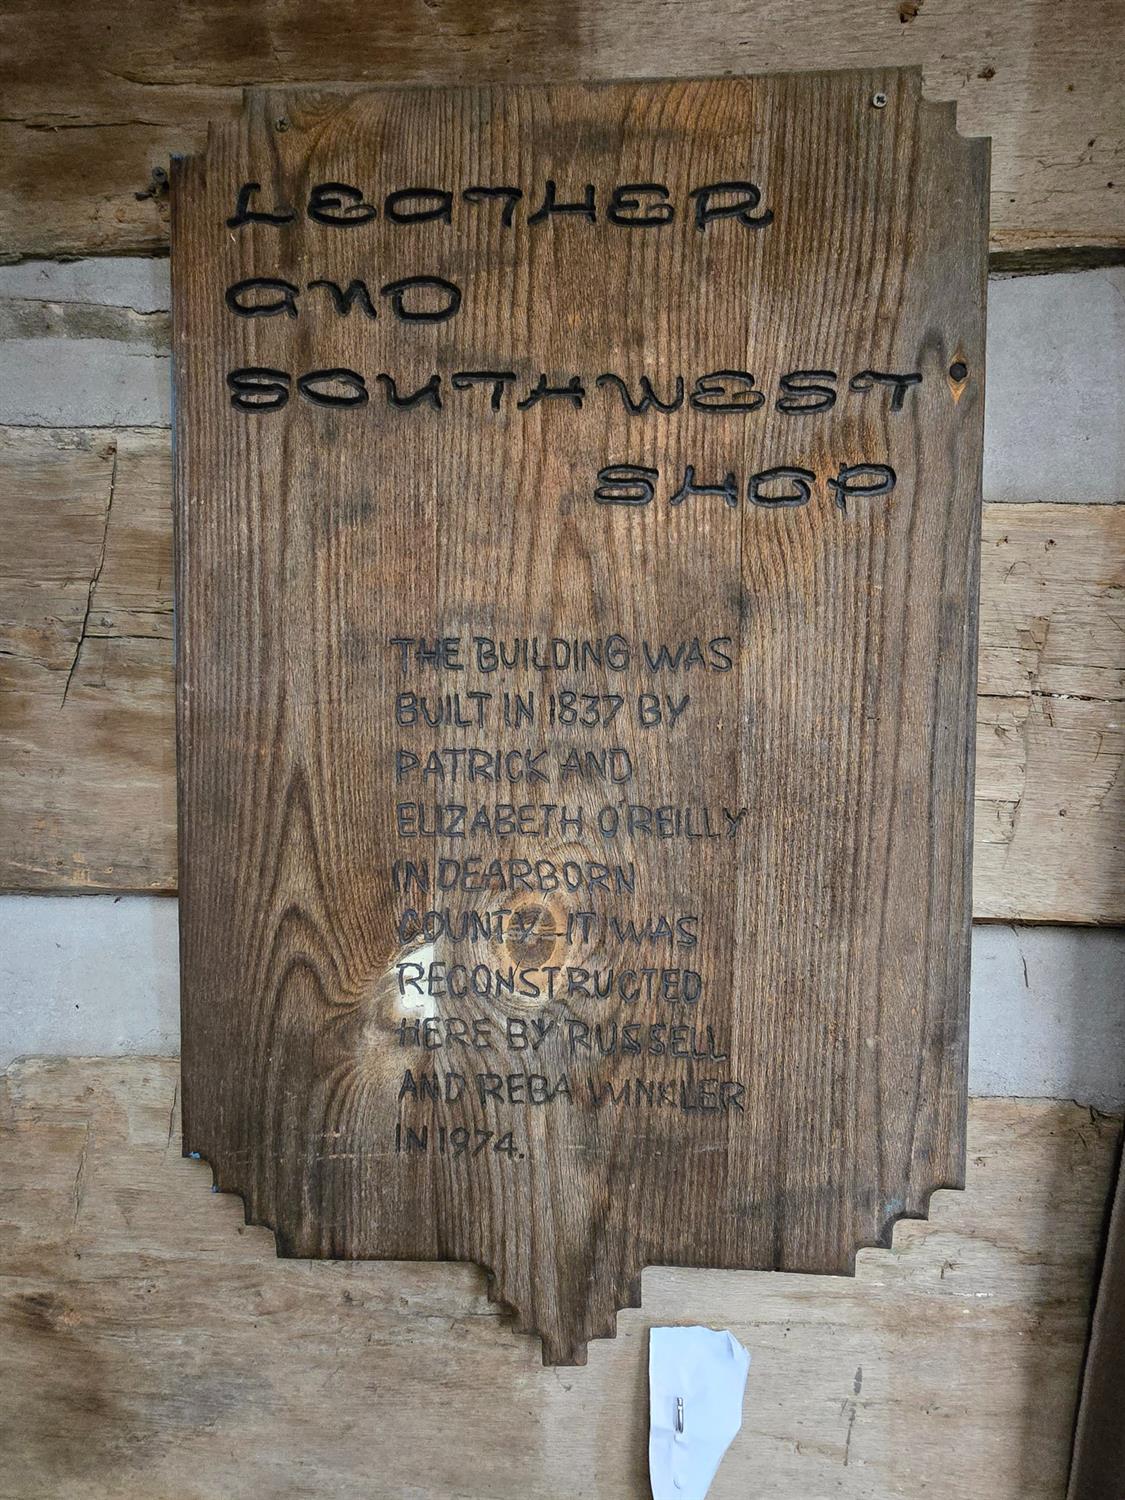 LEATHER
AND
SOUTHWEST
SHOP
THE BUILDING WAS
BUILT IN 1837 BY
PATRICK AND
ELIZABETH O'REILLY
IN DEARBORN
COUNTY IT WAS
RECONSTRUCTED
HERE BY RUSSELL
AND REBA WINKLER
IN 1974.